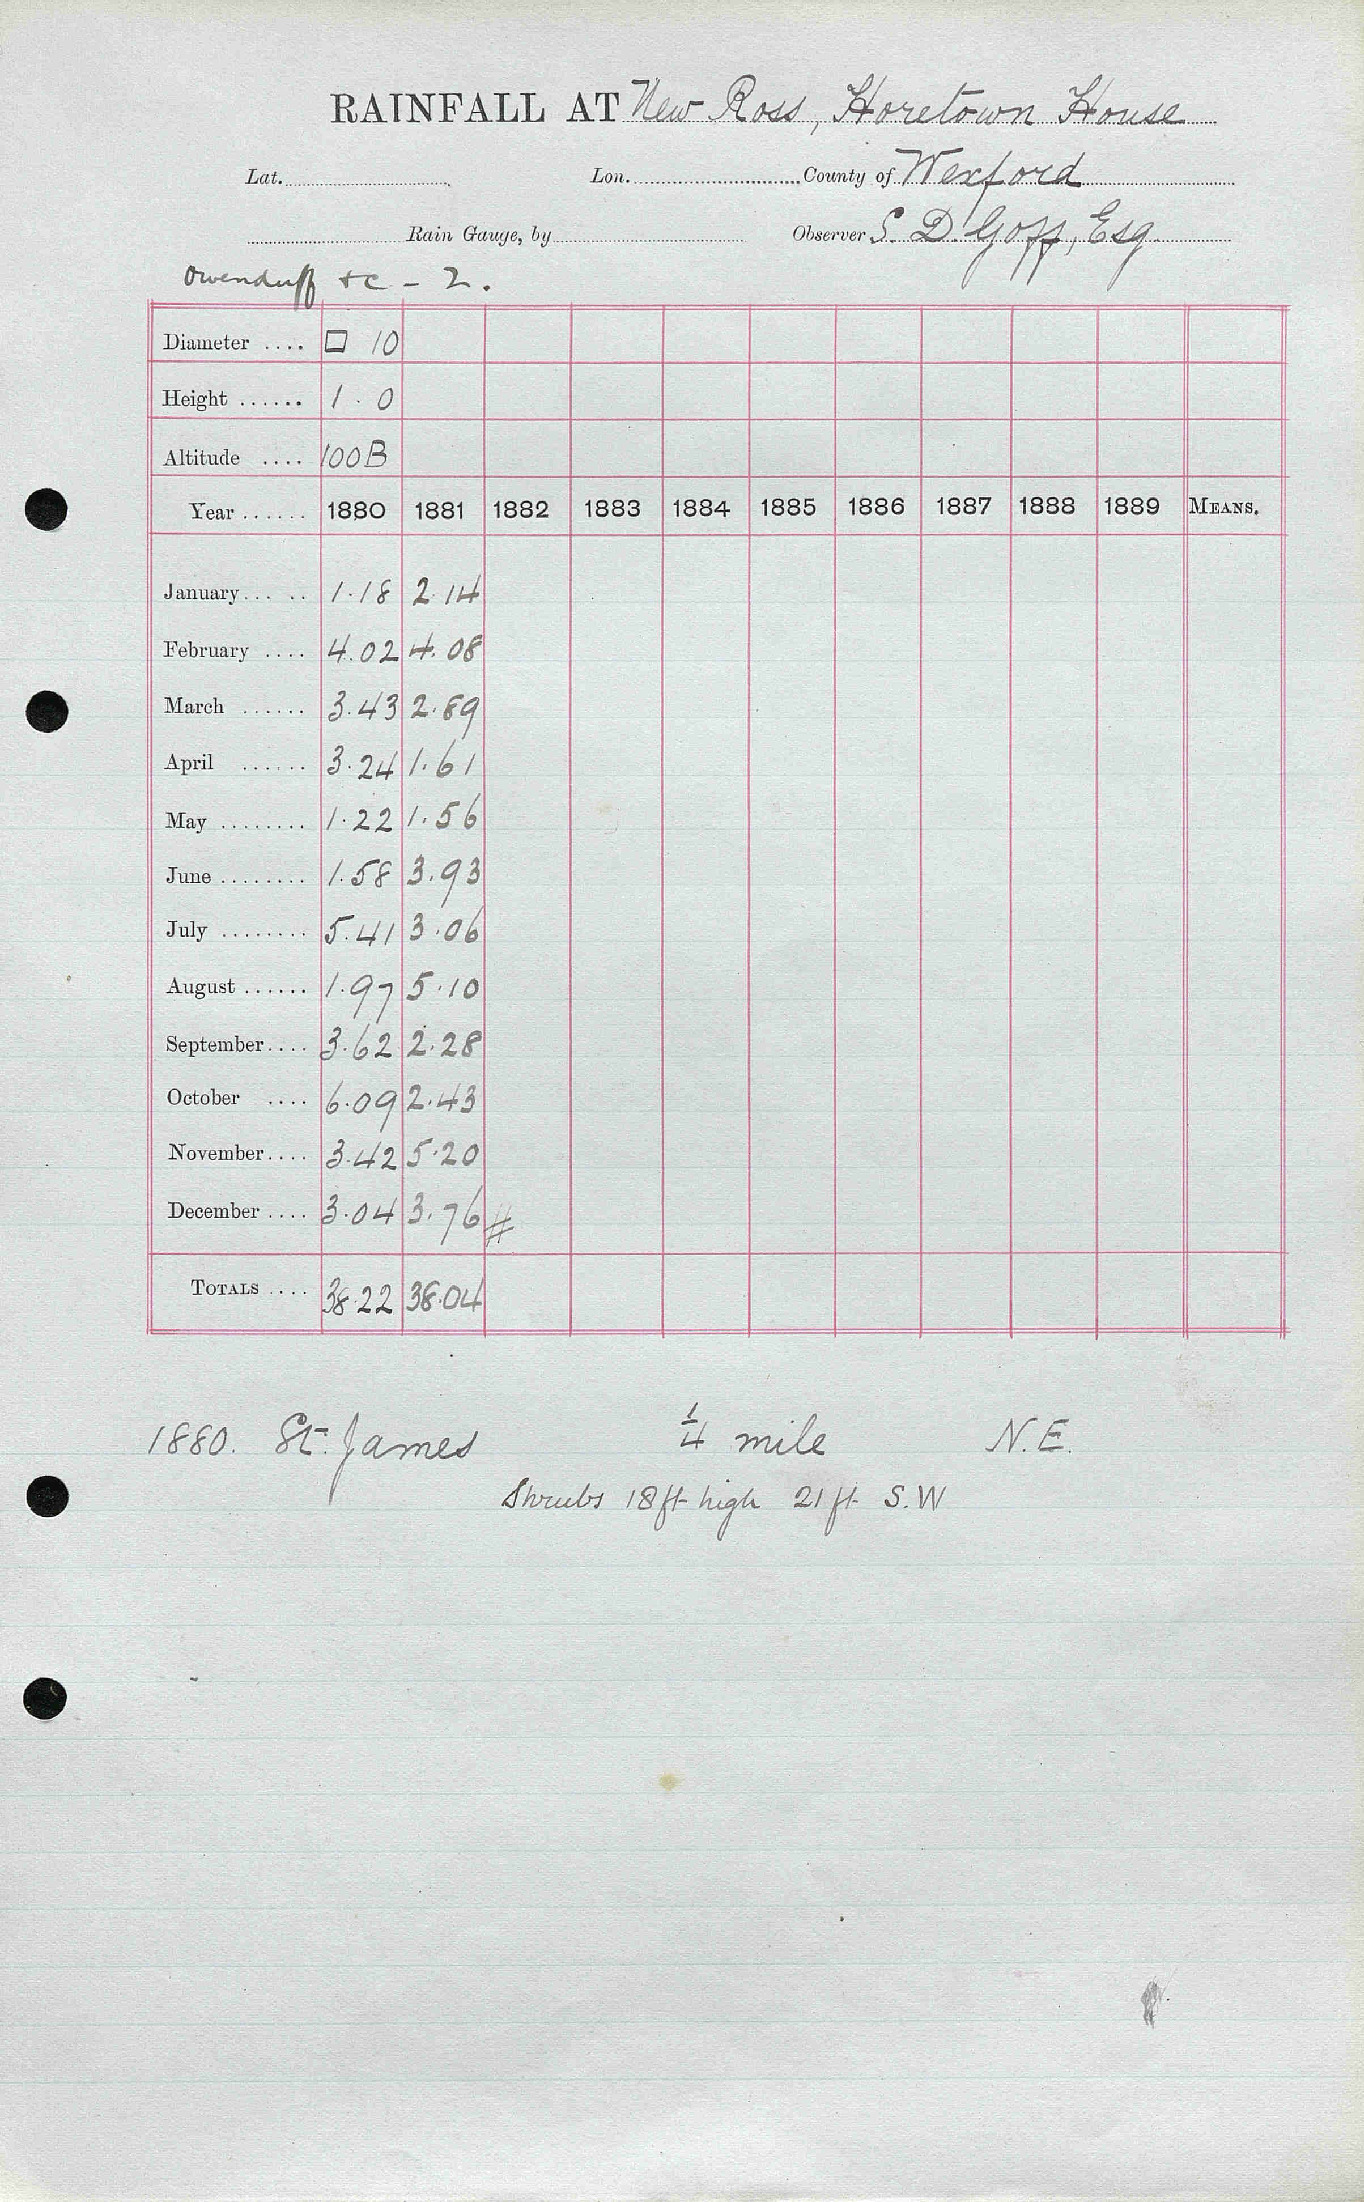 RAINFALL AT New Ross, Horetown House
Lat. Lon. County of Wexford
Rain Gauge, by Observer S. D. Goff, Esq
Owenduff &c - 2.
Diameter .... □ 10
Height ...... 1 . 0
Altitude .... 100B
Year ...... 1880 1881 1882 1883 1884 1885 1886 1887 1888 1889 MEANS.
January ... .. 1.18 2.14
February .... 4.02 4.08
March ...... 3.43 2.89
April ...... 3.24 1.61
May ........ 1.22 1.56
June ........ 1.58 3.93
July ........ 5.41 3.06
August ...... 1.97 5.10
September.... 3.62 2.28
October .... 6.09 2.43
November.... 3.42 5.20
December .... 3.04 3.76 #
TOTALS .... 38.22 38.04
1880. St. James ¼ mile N.E.
Shrubs 18ft high 21ft S.W